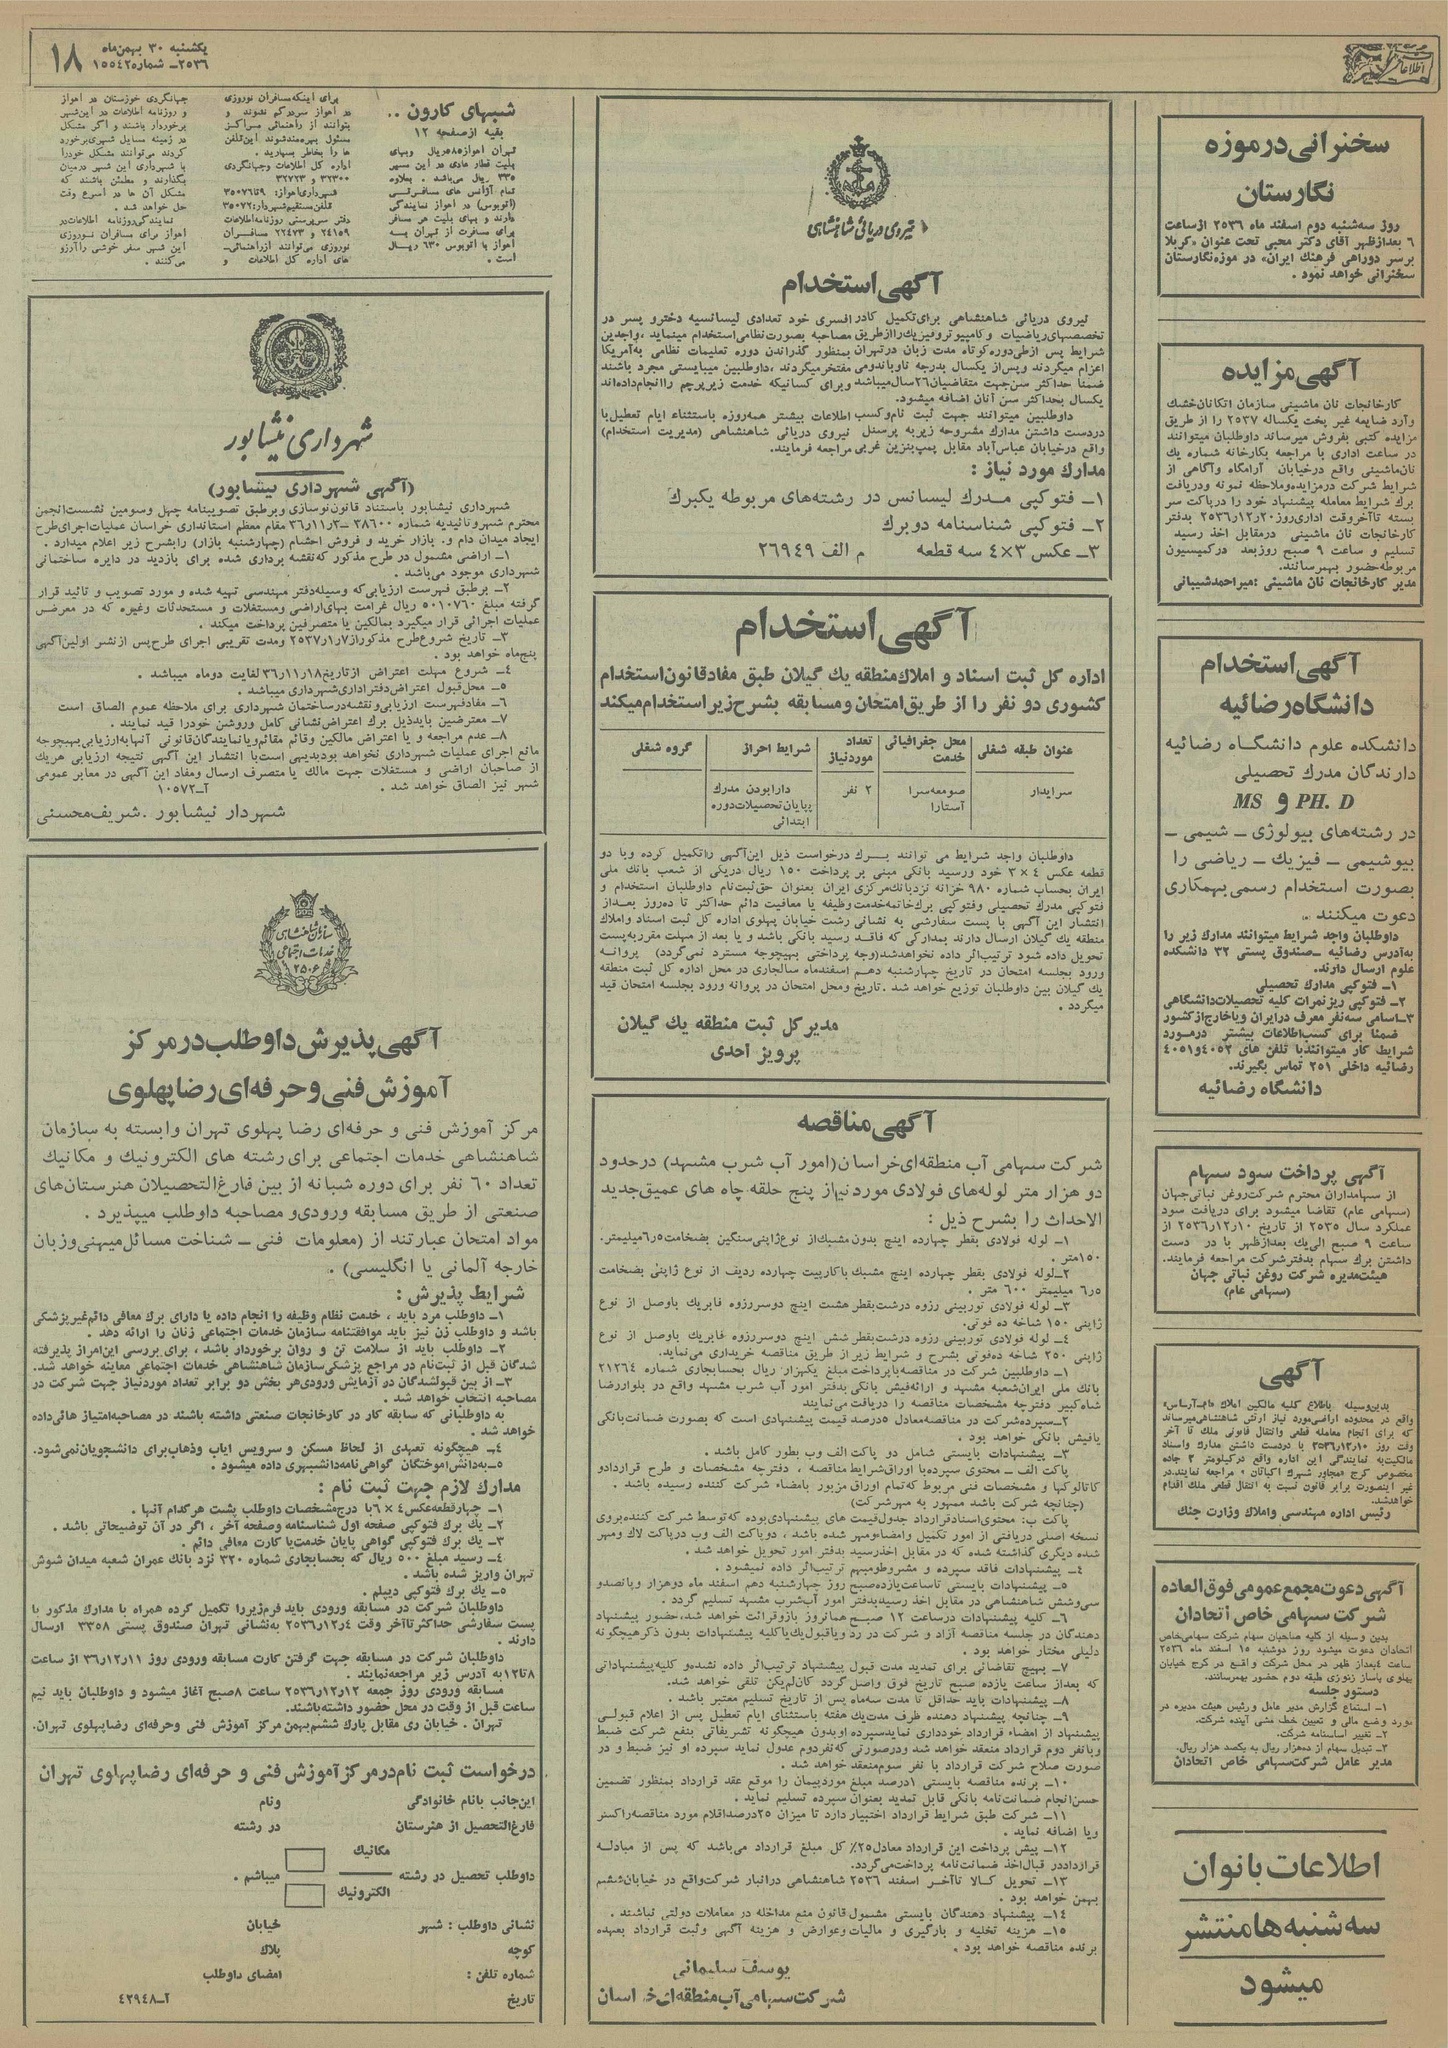 یکشنبه ۳۰ بهمن‌ماه
۲۵۳۶ـ شماره ۱۵۵۴۲
۱۸
اطلاعات
سخنرانی در موزه
نگارستان
روز سه‌شنبه دوم اسفند ماه ۲۵۳۶ از ساعت
۶ بعدازظهر آقای دکتر محبی تحت عنوان «کربلا
برسر دوراهی فرهنگ ایران» در موزه نگارستان
سخنرانی خواهد نمود .
آگهی مزایده
کارخانجات نان ماشینی سازمان اتکا نان خشک
وآرد ضایعه غیر پخت یکساله ۲۵۳۷ را از طریق
مزایده کتبی بفروش میرساند داوطلبان میتوانند
در ساعت اداری با مراجعه بکارخانه شماره یک
نان‌ماشینی واقع درخیابان آرامگاه وآگاهی از
شرایط شرکت درمزایده وملاحظه نمونه ودریافت
برگ شرایط معامله پیشنهاد خود را درپاکت سر
بسته تاآخر وقت اداری روز ۲۰ر۱۲ر۲۵۳۶ بدفتر
کارخانجات نان ماشینی درمقابل اخذ رسید
تسلیم و ساعت ۹ صبح روزبعد درکمیسیون
مربوطه حضور بهمرسانند.
مدیر کارخانجات نان ماشینی : میراحمد شیبانی
آگهی استخدام
دانشگاه رضائیه
دانشکده علوم دانشگاه رضائیه
دارندگان مدرک تحصیلی
PH. D و MS
در رشته‌های بیولوژی ـ شیمی ـ
بیوشیمی ـ فیزیک ـ ریاضی را
بصورت استخدام رسمی بهمکاری
دعوت میکنند .
داوطلبان واجد شرایط میتوانند مدارک زیر را
به‌آدرس رضائیه ـ صندوق پستی ۳۲ دانشکده
علوم ارسال دارند.
۱ـ فتوکپی مدارک تحصیلی
۲ـ فتوکپی ریز نمرات کلیه تحصیلات دانشگاهی
۳ـ اسامی سه‌نفر معرف درایران ویاخارج ازکشور
ضمنا برای کسب اطلاعات بیشتر درمورد
شرایط کار میتوانند با تلفن های ۴۰۵۲ و ۴۰۵۱
رضائیه داخلی ۲۵۱ تماس بگیرند.
دانشگاه رضائیه
آگهی پرداخت سود سهام
از سهامداران محترم شرکت روغن نباتی جهان
(سهامی عام) تقاضا میشود برای دریافت سود
عملکرد سال ۲۵۳۵ از تاریخ ۱۰ر۱۲ر۲۵۳۶ از
ساعت ۹ صبح الی یک بعدازظهر با در دست
داشتن برگ سهام بدفتر شرکت مراجعه فرمایند.
هیئت‌مدیره شرکت روغن نباتی جهان
(سهامی عام)
آگهی
واقع در محدوده اراضی مورد نیاز ارتش شاهنشاهی میرساند
که برای انجام معامله قطعی وانتقال قانونی ملک تا آخر
وقت روز ۱۰ر۱۲ر۲۵۳۶ با دردست داشتن مدارک واسناد
مالکیت به نمایندگی این اداره واقع درکیلومتر ۲ جاده
مخصوص کرج «مجاور شهرک اکباتان» مراجعه نمایند.در
غیر اینصورت برابر قانون نسبت به انتقال قطعی ملک اقدام
خواهدشد.
رئیس اداره مهندسی واملاک وزارت جنگ
آگهی دعوت مجمع عمومی فوق‌العاده
شرکت سهامی خاص اتحادان
بدین وسیله از کلیه صاحبان سهام شرکت سهامی خاص
اتحادان دعوت میشود روز دوشنبه ۱۵ اسفند ماه ۲۵۳۶
ساعت ۴ بعداز ظهر در محل شرکت واقع در کرج خیابان
پهلوی پاساژ زنوزی طبقه دوم حضور بهمرسانند.
دستور جلسه
۱ـ استماع گزارش مدیر عامل ورئیس هیئت مدیره در
مورد وضع مالی و تعیین خط مشی آینده شرکت.
۲ـ تغییر اساسنامه شرکت.
۳ـ تبدیل سهام از ده‌هزار ریال به یکصد هزار ریال.
مدیر عامل شرکت سهامی خاص اتحادان
اطلاعات بانوان
سه شنبه ها منتشر
میشود
نیروی دریائی شاهنشاهی
آگهی استخدام
نیروی دریائی شاهنشاهی برای تکمیل کادر افسری خود تعدادی لیسانسیه دختر و پسر در
تخصصهای ریاضیات و کامپیوتر و فیزیک را از طریق مصاحبه بصورت نظامی استخدام مینماید ، واجدین
شرایط پس از طی دوره کوتاه مدت زبان درتهران بمنظور گذراندن دوره تعلیمات نظامی به‌آمریکا
اعزام میگردند وپس از یکسال بدرجه ناوباندومی مفتخر میگردند ، داوطلبین میبایستی مجرد باشند
ضمنا حداکثر سن جهت متقاضیان ۲۶ سال میباشد وبرای کسانیکه خدمت زیر پرچم را انجام داده‌اند
یکسال بحداکثر سن آنان اضافه میشود.
داوطلبین میتوانند جهت ثبت نام وکسب اطلاعات بیشتر همه‌روزه باستثناء ایام تعطیل با
دردست داشتن مدارک مشروحه زیر به پرسنل نیروی دریائی شاهنشاهی (مدیریت استخدام)
واقع درخیابان عباس‌آباد مقابل پمپ‌بنزین غربی مراجعه فرمایند.
مدارک مورد نیاز :
۱ـ فتوکپی مدرک لیسانس در رشته‌های مربوطه یکبرگ
۲ـ فتوکپی شناسنامه دو برگ
۳ـ عکس ۳×۴ سه قطعه م الف ۲۶۹۴۹
آگهی استخدام
اداره کل ثبت اسناد و املاک منطقه یک گیلان طبق مفاد قانون استخدام
کشوری دو نفر را از طریق امتحان و مسابقه بشرح زیر استخدام میکند
عنوان طبقه شغلی | محل جغرافیائی خدمت | تعداد موردنیاز | شرایط احراز | گروه شغلی
سرایدار | صومعه‌سرا آستارا | ۲ نفر | دارا بودن مدرک پایان تحصیلات دوره ابتدائی
داوطلبان واجد شرایط می توانند برگ درخواست ذیل این آگهی را تکمیل کرده وبا دو
قطعه عکس ۴ × ۳ خود ورسید بانکی مبنی بر پرداخت ۱۵۰ ریال دریکی از شعب بانک ملی
ایران بحساب شماره ۹۸۰ خزانه نزد بانک مرکزی ایران بعنوان حق ثبت‌نام داوطلبان استخدام و
فتوکپی مدرک تحصیلی وفتوکپی برگ خاتمه خدمت وظیفه یا معافیت دائم حداکثر تا ده‌روز بعد از
انتشار این آگهی با پست سفارشی به نشانی رشت خیابان پهلوی اداره کل ثبت اسناد واملاک
منطقه یک گیلان ارسال دارند بمدارکی که فاقد رسید بانکی باشد و یا بعد از مهلت مقرر به‌پست
تحویل داده شود ترتیب‌اثر داده نخواهد شد (وجه پرداختی بهیچوجه مسترد نمی‌گردد) پروانه
ورود بجلسه امتحان در تاریخ چهارشنبه دهم اسفندماه سالجاری در محل اداره کل ثبت منطقه
یک گیلان بین داوطلبان توزیع خواهد شد . تاریخ ومحل امتحان در پروانه ورود بجلسه امتحان قید
میگردد .
مدیر کل ثبت منطقه یک گیلان
پرویز احدی
آگهی مناقصه
شرکت سهامی آب منطقه‌ای خراسان (امور آب شرب مشهد) در حدود
دو هزار متر لوله‌های فولادی مورد نیاز پنج حلقه چاه های عمیق جدید
الاحداث را بشرح ذیل :
۱ـ لوله فولادی بقطر چهارده اینچ بدون مشبک از نوع ژاپنی سنگین بضخامت ۵ر۶ میلیمتر.
۱۵۰ متر .
۲ـ لوله فولادی بقطر چهارده اینچ مشبک باکارپیت چهارده ردیف از نوع ژاپنی بضخامت
۵ر۶ میلیمتر ۶۰۰ متر .
۳ـ لوله فولادی توربینی رزوه درشت بقطر هشت اینچ دوسر رزوه فابریک باوصل از نوع
ژاپنی ۱۵۰ شاخه ده فوتی.
۴ـ لوله فولادی توربینی رزوه درشت بقطر شش اینچ دوسر رزوه فابریک باوصل از نوع
ژاپنی ۲۵۰ شاخه ده‌فوتی بشرح و شرایط زیر از طریق مناقصه خریداری می‌نماید.
۱ـ داوطلبین شرکت در مناقصه با پرداخت مبلغ یکهزار ریال بحساب جاری شماره ۲۱۲۶۴
بانک ملی ایران شعبه مشهد و ارائه فیش بانکی بدفتر امور آب شرب مشهد واقع در بلوار رضا
شاه‌کبیر دفترچه مشخصات مناقصه را دریافت می‌نمایند
۲ـ سپرده شرکت در مناقصه معادل ۵درصد قیمت پیشنهادی است که بصورت ضمانت بانکی
یافیش بانکی خواهد بود .
۳ـ پیشنهادات بایستی شامل دو پاکت الف وب بطور کامل باشد .
پاکت الف ـ محتوی سپرده با اوراق شرایط مناقصه ، دفترچه مشخصات و طرح قرارداد و
کاتالوکها و مشخصات فنی مربوط که تمام اوراق مزبور بامضاء شرکت کننده رسیده باشد .
(چنانچه شرکت باشد ممهور به مهر شرکت)
پاکت ب: محتوی اسناد قرارداد جدول قیمت های پیشنهادی بوده که توسط شرکت کننده بروی
نسخه اصلی دریافتی از امور تکمیل وامضاء ومهر شده باشد ، دو پاکت الف وب درپاکت لاک ومهر
شده دیگری گذاشته شده که در مقابل اخذ رسید بدفتر امور تحویل خواهد شد .
۴ـ پیشنهادات فاقد سپرده و مشروط ومبهم ترتیب‌اثر داده نمیشود .
۵ـ پیشنهادات بایستی تا ساعت یازده صبح روز چهارشنبه دهم اسفند ماه دوهزار و پانصدو
سی‌وشش شاهنشاهی در مقابل اخذ رسید بدفتر امور آب شرب مشهد تسلیم گردد .
۶ـ کلیه پیشنهادات درساعت ۱۲ صبح همانروز باز و قرائت خواهد شد، حضور پیشنهاد
دهندگان در جلسه مناقصه آزاد و شرکت در رد ویاقبول یک یا کلیه پیشنهادات بدون ذکر هیچگونه
دلیلی مختار خواهد بود .
۷ـ بهیچ تقاضائی برای تمدید مدت قبول پیشنهاد ترتیب‌اثر داده نشده و کلیه پیشنهاداتی
که بعداز ساعت یازده صبح تاریخ فوق واصل گردد کان‌لم‌یکن تلقی خواهد شد.
۸ـ پیشنهادات باید حداقل تا مدت سه‌ماه پس از تاریخ تسلیم معتبر باشد .
۹ـ چنانچه پیشنهاد دهنده ظرف مدت یک هفته باستثنای ایام تعطیل پس از اعلام قبولی
پیشنهاد از امضاء قرارداد خودداری نماید سپرده او بدون هیچگونه تشریفاتی بنفع شرکت ضبط
وبانفر دوم قرارداد منعقد خواهد شد ودرصورتی که نفردوم عدول نماید سپرده او نیز ضبط و در
صورت صلاح شرکت قرارداد با نفر سوم منعقد خواهد شد .
۱۰ـ برنده مناقصه بایستی ۱۰درصد مبلغ مورد پیمان را موقع عقد قرارداد بمنظور تضمین
حسن انجام ضمانت‌نامه بانکی قابل تمدید بعنوان سپرده تسلیم نماید .
۱۱ـ شرکت طبق شرایط قرارداد اختیار دارد تا میزان ۲۵درصد اقلام مورد مناقصه را کسر
ویا اضافه نماید .
۱۲ـ پیش پرداخت این قرارداد معادل ۲۵٪ کل مبلغ قرارداد می‌باشد که پس از مبادله
قرارداد در قبال اخذ ضمانت نامه پرداخت می‌گردد.
۱۳ـ تحویل کالا تاآخر اسفند ۲۵۳۶ شاهنشاهی درانبار شرکت واقع در خیابان ششم
بهمن خواهد بود .
۱۴ـ پیشنهاد دهندگان بایستی مشمول قانون منع مداخله در معاملات دولتی نباشند .
۱۵ـ هزینه تخلیه و بارگیری و مالیات وعوارض و هزینه آگهی وثبت قرارداد بعهده
برنده مناقصه خواهد بود .
یوسف سلیمانی
شرکت سهامی آب منطقه‌ای خراسان
شبهای کارون ..
بقیه از صفحه ۱۲
تهران اهواز ۵۸۵ ریال وبهای
بلیت قطار عادی در این مسیر
۳۳۵ ریال می‌باشد . بعلاوه
تمام آژانس های مسافرتی
(اتوبوس) در اهواز نمایندگی
دارند و بهای بلیت هر مسافر
برای مسافرت از تهران به
اهواز با اتوبوس ۶۳۰ ریال
است .
برای اینکه مسافران نوروزی
در اهواز سردرگم نشوند و
بتوانند از راهنمائی مراکز
مسئول بهره‌مند شوند این تلفن
ها را بخاطر بسپارید .
اداره کل اطلاعات وجهانگردی
۳۲۳۰۰ و ۳۲۷۲۳
شهرداری اهواز: ۹ تا ۳۵۰۷۶
تلفن مستقیم شهردار: ۳۵۰۷۲
دفتر سرپرستی روزنامه اطلاعات
۲۴۱۵۹ و ۲۲۴۷۳ مسافران
نوروزی می‌توانند از راهنمائی‌ـ
های اداره کل اطلاعات و
جهانگردی خوزستان در اهواز
و روزنامه اطلاعات در این شهر
برخوردار باشند و اگر مشکل
در زمینه مسایل شهری برخورد
کردند می‌توانند مشکل خود را
با شهرداری این شهر درمیان
بگذارند و مطمئن باشند که
مشکل آن ها در اسرع وقت
حل خواهد شد .
نمایندگی روزنامه اطلاعات در
اهواز برای مسافران نوروزی
این شهر سفر خوشی را آرزو
می‌کنند .
شهرداری نیشابور
(آگهی شهرداری نیشابور)
شهرداری نیشابور باستناد قانون نوسازی وبرطبق تصویبنامه چهل وسومین نشست انجمن
محترم شهر وتائیدیه شماره ۳۸۶۰۰ ـ ۳ر۱۱ر۳۶ مقام معظم استانداری خراسان عملیات اجرای طرح
ایجاد میدان دام و. بازار خرید و فروش احشام (چهارشنبه بازار) را بشرح زیر اعلام میدارد .
۱ـ اراضی مشمول در طرح مذکور که نقشه برداری شده برای بازدید در دایره ساختمانی
شهرداری موجود می‌باشد .
۲ـ برطبق فهرست ارزیابی که وسیله دفتر مهندسی تهیه شده و مورد تصویب و تائید قرار
گرفته مبلغ ۵۰۱۰۷۶۰ ریال غرامت بهای اراضی ومستغلات و مستحدثات وغیره که در معرض
عملیات اجرائی قرار میگیرد بمالکین یا متصرفین پرداخت میکند .
۳ـ تاریخ شروع طرح مذکور از ۷ر۱ر۲۵۳۷ ومدت تقریبی اجرای طرح پس از نشر اولین آگهی
پنج ماه خواهد بود .
۴ـ شروع مهلت اعتراض از تاریخ ۱۸ر۱۱ر۳۶ لغایت دوماه میباشد .
۵ـ محل قبول اعتراض دفتر اداری شهرداری میباشد .
۶ـ مفاد فهرست ارزیابی و نقشه در ساختمان شهرداری برای ملاحظه عموم الصاق است
۷ـ معترضین باید ذیل برگ اعتراض نشانی کامل وروشن خود را قید نمایند .
۸ـ عدم مراجعه و یا اعتراض مالکین وقائم مقائم و یا نمایندگان قانونی آنها به ارزیابی بهیچوجه
مانع اجرای عملیات شهرداری نخواهد بود بدیهی است با انتشار این آگهی نتیجه ارزیابی هر یک
از صاحبان اراضی و مستغلات جهت مالک یا متصرف ارسال ومفاد این آگهی در معابر عمومی
شهر نیز الصاق خواهد شد . آـ ۱۰۵۷۲
شهردار نیشابور . شریف محسنی
سازمان شاهنشاهی
خدمات اجتماعی
۲۵۰۶
آگهی پذیرش داوطلب در مرکز
آموزش فنی و حرفه‌ای رضا پهلوی
مرکز آموزش فنی و حرفه‌ای رضا پهلوی تهران وابسته به سازمان
شاهنشاهی خدمات اجتماعی برای رشته های الکترونیک و مکانیک
تعداد ۶۰ نفر برای دوره شبانه از بین فارغ‌التحصیلان هنرستان‌های
صنعتی از طریق مسابقه ورودی و مصاحبه داوطلب میپذیرد .
مواد امتحان عبارتند از (معلومات فنی ـ شناخت مسائل میهنی وزبان
خارجه آلمانی یا انگلیسی) .
شرایط پذیرش :
۱ـ داوطلب مرد باید ، خدمت نظام وظیفه را انجام داده یا دارای برگ معافی دائم غیر پزشکی
باشد و داوطلب زن نیز باید موافقتنامه سازمان خدمات اجتماعی زنان را ارائه دهد .
۲ـ داوطلب باید از سلامت تن و روان برخوردار باشد ، برای بررسی این امر از پذیرفته
شدگان قبل از ثبت‌نام در مراجع پزشکی سازمان شاهنشاهی خدمات اجتماعی معاینه خواهد شد.
۳ـ از بین قبولشدگان در آزمایش ورودی هر بخش دو برابر تعداد مورد نیاز جهت شرکت در
مصاحبه انتخاب خواهد شد .
به داوطلبانی که سابقه کار در کارخانجات صنعتی داشته باشند در مصاحبه امتیاز هائی داده
خواهد شد .
۴ـ هیچگونه تعهدی از لحاظ مسکن و سرویس ایاب وذهاب برای دانشجویان نمی‌شود.
۵ـ به دانش‌آموختگان گواهی نامه دانشبهری داده میشود .
مدارک لازم جهت ثبت نام :
۱ـ چهارقطعه عکس ۴ × ۶ با درج مشخصات داوطلب پشت هرکدام آنها .
۲ـ یک برگ فتوکپی صفحه اول شناسنامه وصفحه آخر ، اگر در آن توضیحاتی باشد .
۳ـ یک برگ فتوکپی گواهی پایان خدمت یا کارت معافی دائم .
۴ـ رسید مبلغ ۵۰۰ ریال که بحساب جاری شماره ۳۲۰ نزد بانک عمران شعبه میدان شوش
تهران واریز شده باشد .
۵ـ یک برگ فتوکپی دیپلم .
داوطلبان شرکت در مسابقه ورودی باید فرم زیر را تکمیل کرده همراه با مدارک مذکور با
پست سفارشی حداکثر تا آخر وقت ۴ر۱۲ر۲۵۳۶ به نشانی تهران صندوق پستی ۳۳۵۸ ارسال
دارند .
داوطلبان شرکت در مسابقه جهت گرفتن کارت مسابقه ورودی روز ۱۱ر۱۲ر۳۶ از
۸ تا ۱۲ به آدرس زیر مراجعه نمایند .
مسابقه ورودی روز جمعه ۱۲ر۱۲ر۲۵۳۶ ساعت ۸ صبح آغاز میشود و داوطلبان باید نیم
ساعت قبل از وقت در محل حضور داشته باشند.
تهران . خیابان ری مقابل پارک ششم بهمن مرکز آموزش فنی وحرفه‌ای رضا پهلوی تهران.
درخواست ثبت نام در مرکز آموزش فنی و حرفه‌ای رضا پهلوی تهران
این‌جانب بانام خانوادگی ونام
فارغ‌التحصیل از هنرستان در رشته
مکانیک
داوطلب تحصیل در رشته میباشم .
الکترونیک
نشانی داوطلب : شهر خیابان
کوچه پلاک
شماره تلفن : امضای داوطلب
تاریخ آـ ۴۲۹۴۸